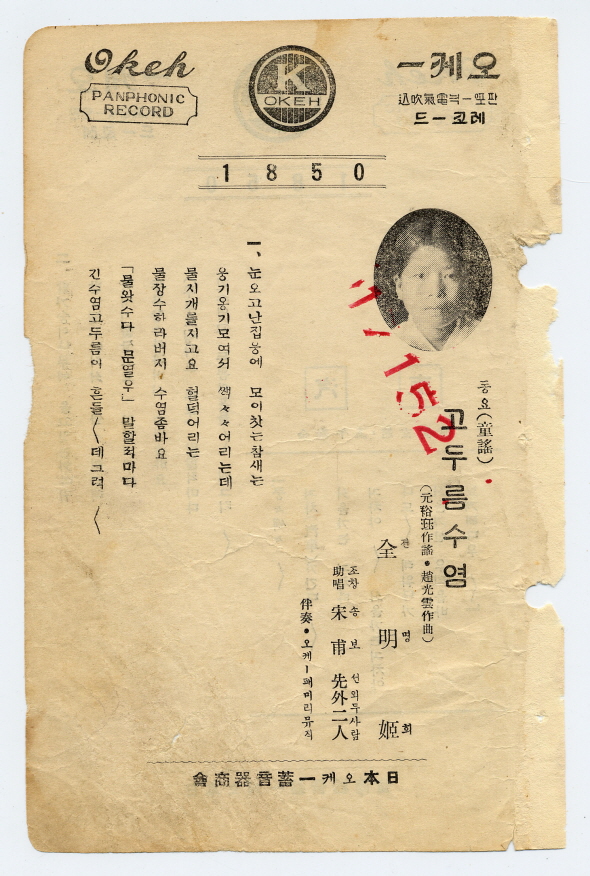 Okeh
PANPHONIC
RECORD
K
OKEH
오케ー
판또ー극電氣吹込
레코ー드
1850
71152
동요(童謠)
고두름수염
(元裕珏作謠・趙光雲作曲)
全明姬
전명희
조창 송보선외두사람
助唱 宋甫先外二人
伴奏・오케ー패미리뮤직
一、눈오고난집웅에 모이찾는참새는
웅기옹기모여서 짹々々어리는데
물지개를지고요 헐덕어리는
물장수하라버지 수염좀바요
「물왓수다 문열우」 말할적마다
긴수염고두름이 흔들〱데그럭〱
日本오케ー蓄音器商會